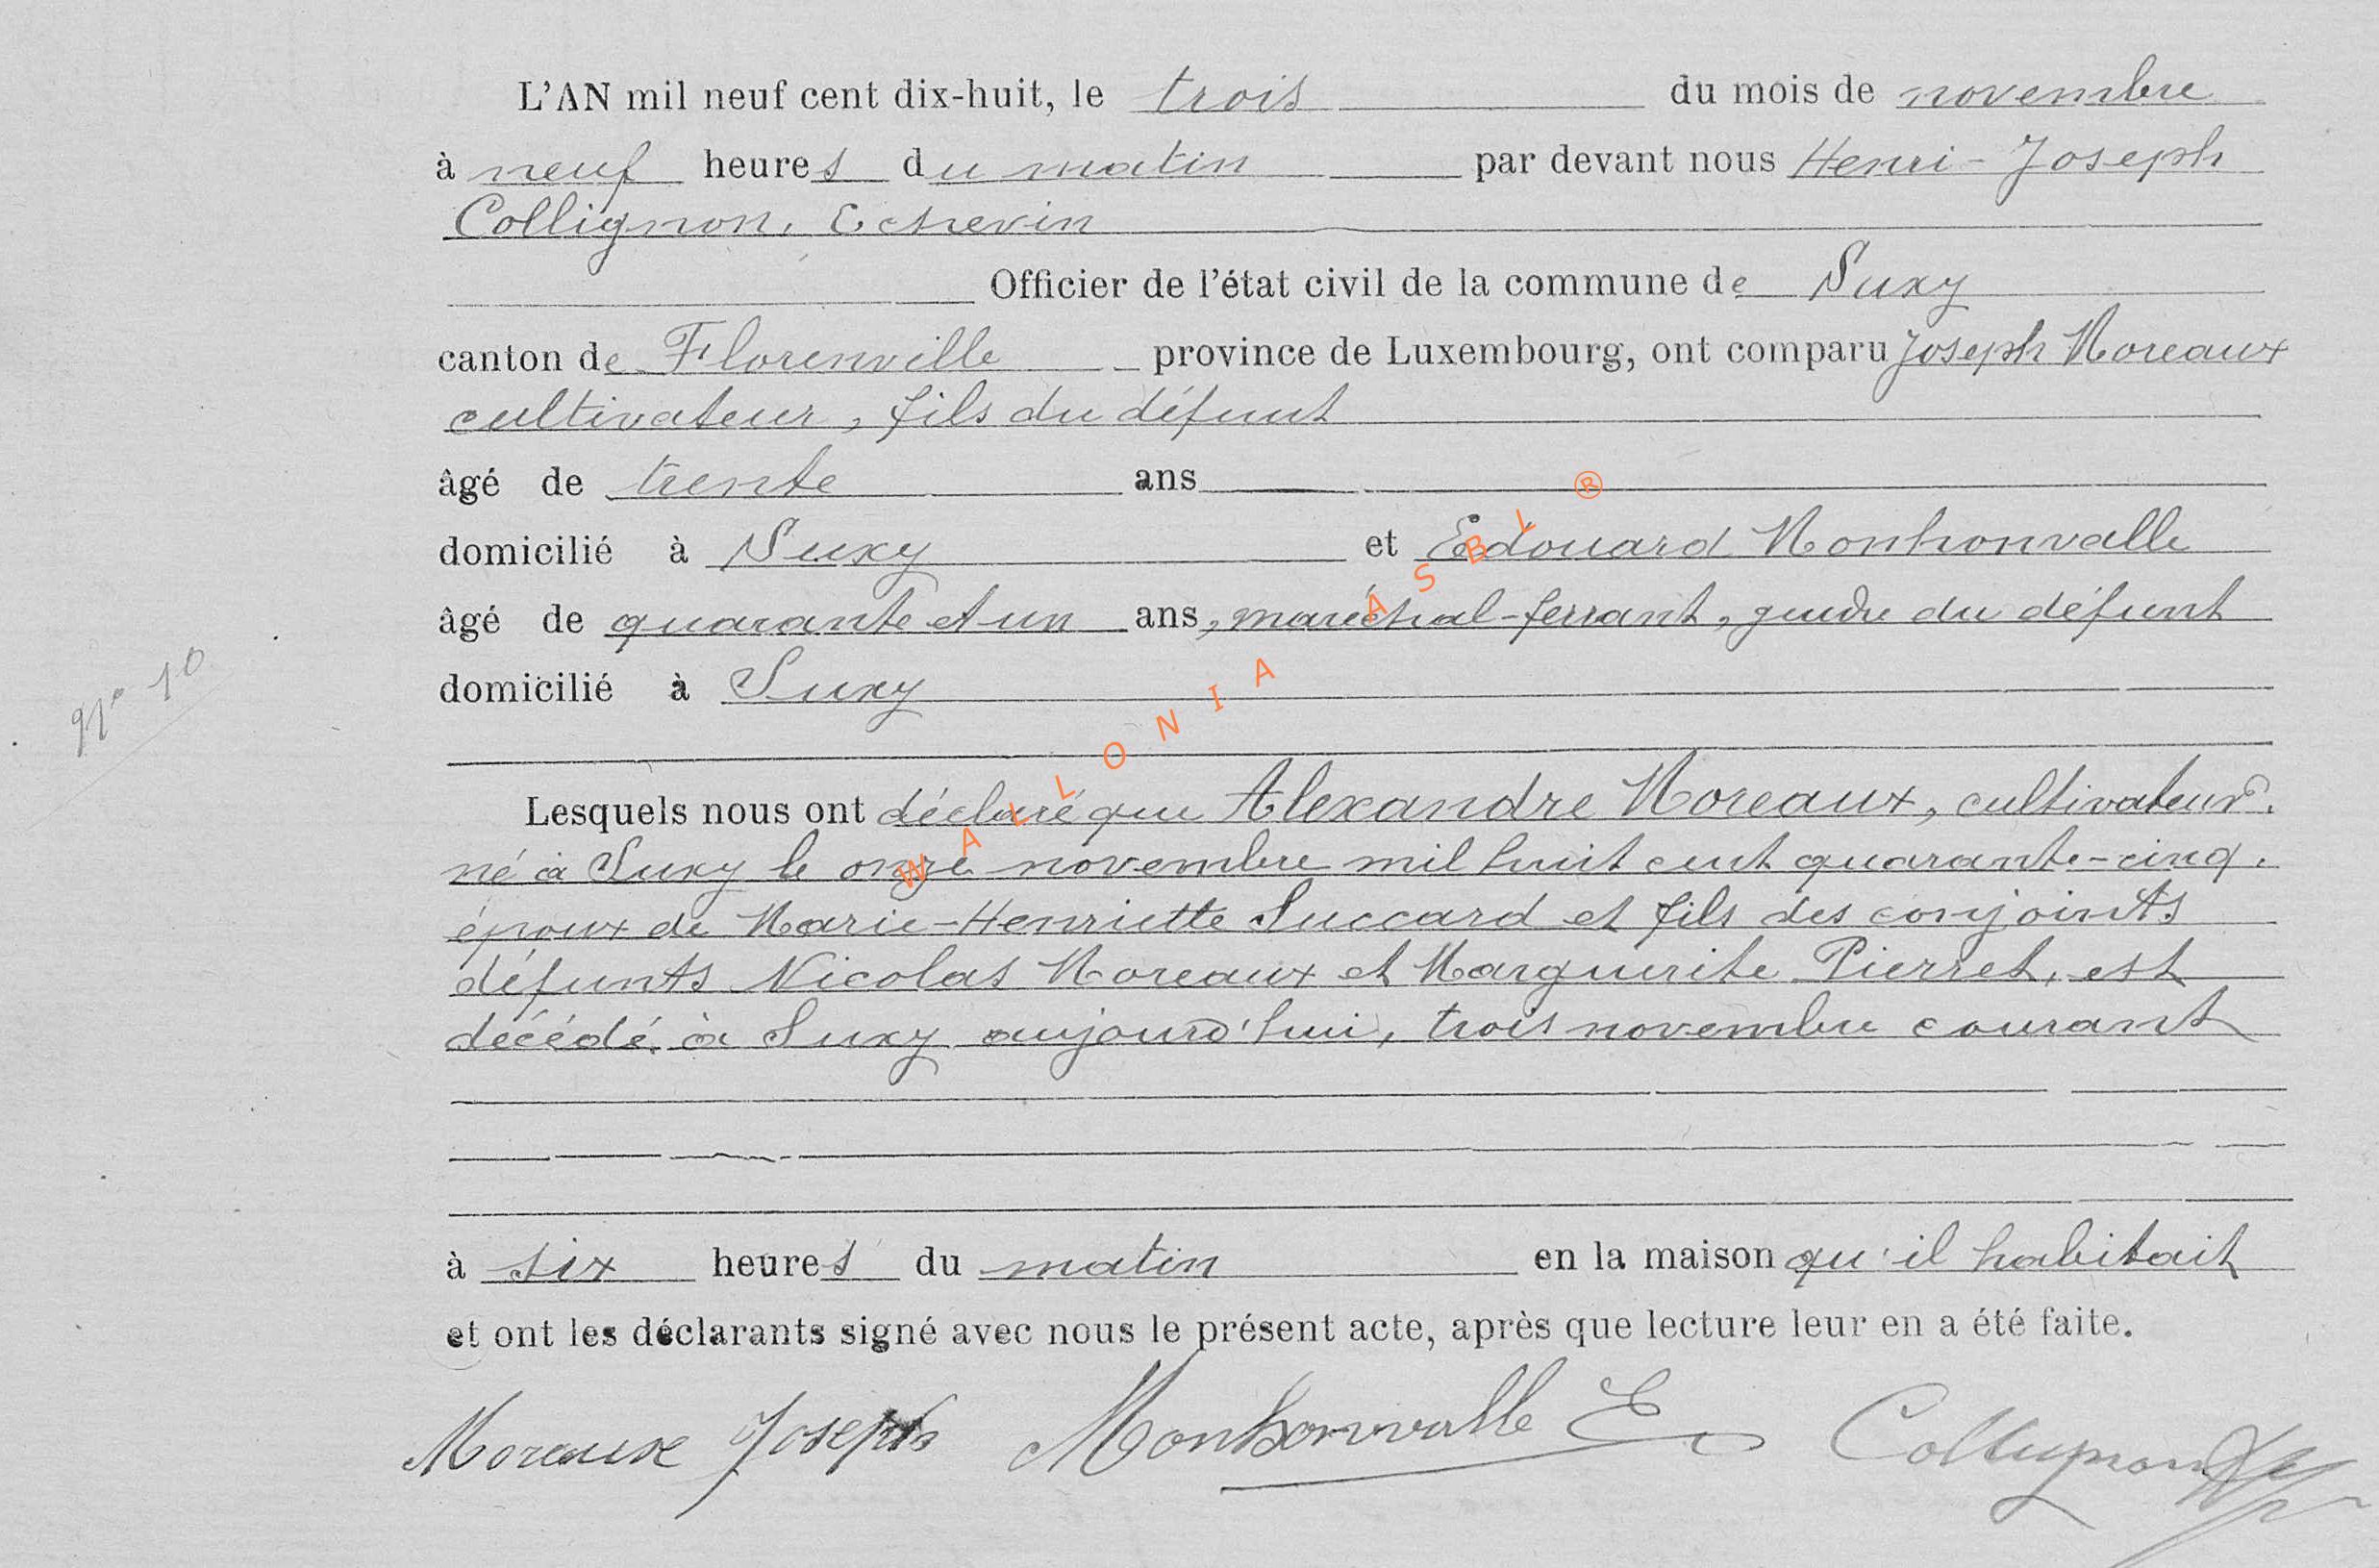 L'AN mil neuf cent dix-huit, le trois du mois de novembre
à neuf heures du matin par devant nous Henri-Joseph
Collignon, Echevin
Officier de l'état civil de la commune de Suxy
canton de Florenville province de Luxembourg, ont comparu Joseph Moreaux
cultivateur, fils du défunt
âgé de trente ans
domicilié à Suxy et Edouard Monhonvalle
âgé de quarante et un ans, maréchal-ferrant, gendre du défunt
domicilié à Suxy
N° 10
Lesquels nous ont déclaré que Alexandre Moreaux, cultivateur,
né à Suxy le onze novembre mil huit cent quarante-cinq,
époux de Marie-Henriette Succard et fils des conjoints
défunts Nicolas Moreaux et Marguerite Pierret, est
décédé à Suxy aujourd'hui, trois novembre courant
à six heures du matin en la maison qu'il habitait
et ont les déclarants signé avec nous le présent acte, après que lecture leur en a été faite.
Moreaux Joseph Monhonvalle E Collignon
WALLONIA ASBL ®